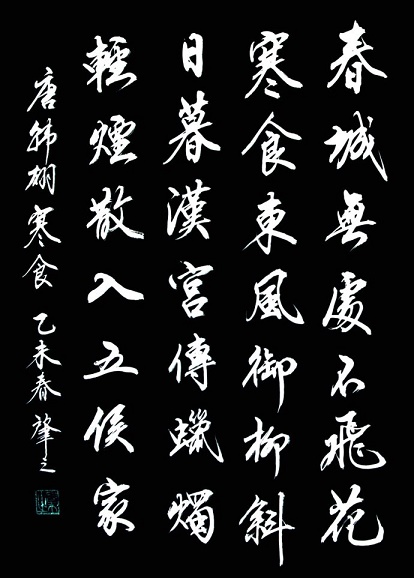 春城無處不飛花
寒食東風御柳斜
日暮漢宮傳蠟燭
輕煙散入五侯家
唐韩翃寒食 乙未春 肇之